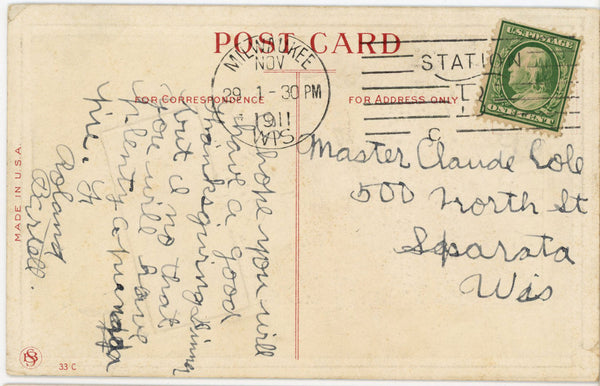 POST CARD
MILWAUKEE
NOV
29 1-30 PM
1911
WIS.
STATION
C
U.S. POSTAGE
ONE CENT
FOR CORRESPONDENCE
FOR ADDRESS ONLY
I hope you will
have a good
thanksgiving dinner
but I no that
you will have
plenty
pie.
Roland
Master Claude Cole
500 North St
Sparata
Wis
MADE IN U.S.A.
33 C